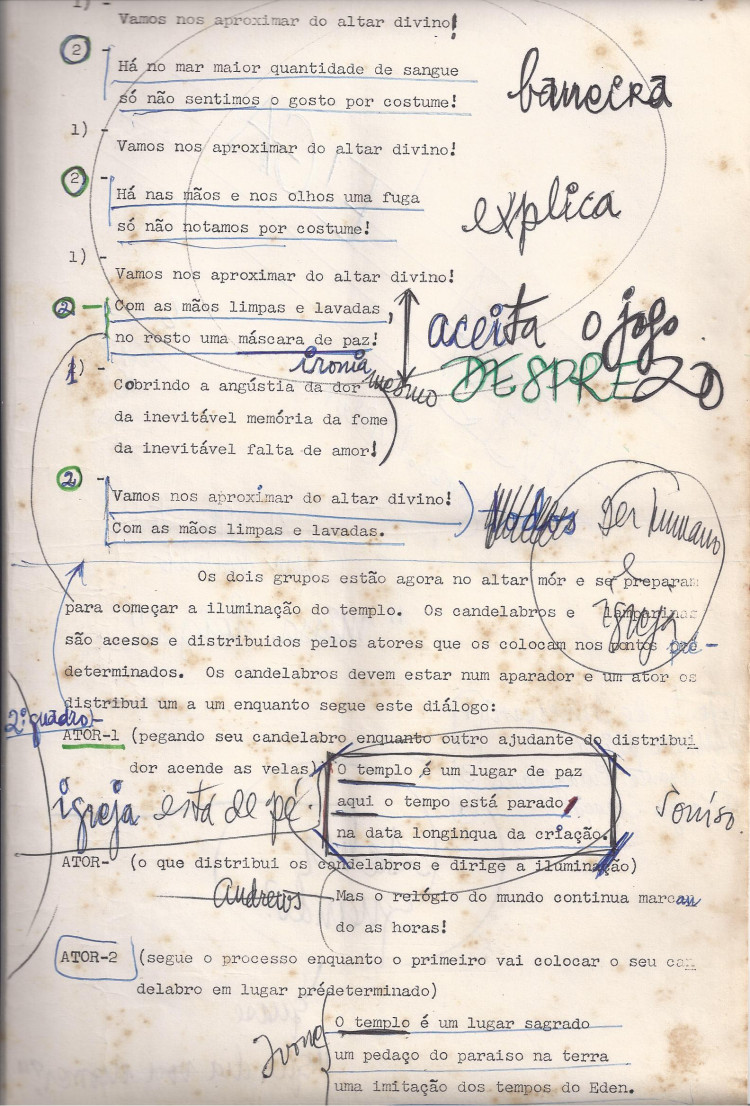 1) -
Vamos nos aproximar do altar divino!
2 -
Há no mar maior quantidade de sangue
só não sentimos o gosto por costume!
barreira
1) -
Vamos nos aproximar do altar divino!
2 -
Há nas mãos e nos olhos uma fuga
só não notamos por costume!
explica
1) -
Vamos nos aproximar do altar divino!
2 -
Com as mãos limpas e lavadas,
no rosto uma máscara de paz!
aceita o jogo
ironia mesmo DESPREZO
1) -
Cobrindo a angústia da dor
da inevitável memória da fome
da inevitável falta de amor!
2 -
Vamos nos aproximar do altar divino!
Com as mãos limpas e lavadas.
todos
Ser humano
e
igreja
Os dois grupos estão agora no altar mór e se preparam
para começar a iluminação do templo. Os candelabros e lamparinas
são acesos e distribuidos pelos atores que os colocam nos pontos pré-
determinados. Os candelabros devem estar num aparador e um ator os
distribui um a um enquanto segue este diálogo:
2º quadro
ATOR-1 (pegando seu candelabro enquanto outro ajudante do distribui
dor acende as velas)
O templo é um lugar de paz
aqui o tempo está parado
na data longinqua da criação.
igreja está de pé.
ATOR- (o que distribui os candelabros e dirige a iluminação)
Andrews
Mas o relógio do mundo continua marcan
do as horas!
ATOR-2 (segue o processo enquanto o primeiro vai colocar o seu can
delabro em lugar prédeterminado)
Ivone
O templo é um lugar sagrado
um pedaço do paraiso na terra
uma imitação dos tempos do Eden.